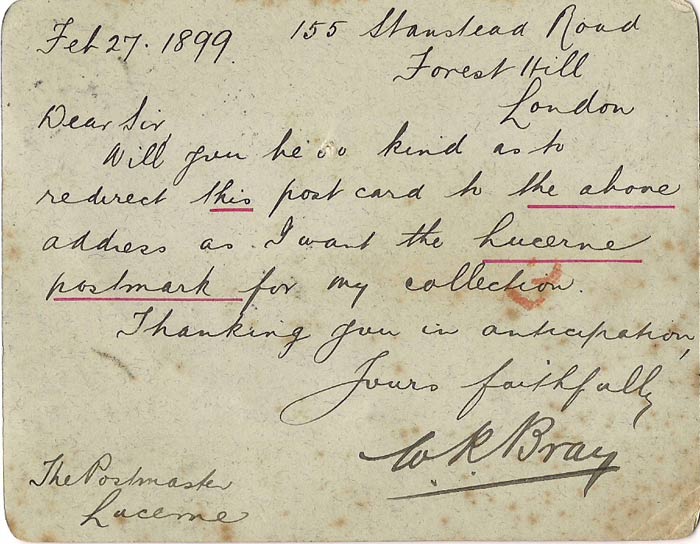 Feb 27. 1899. 155 Stanstead Road
Forest Hill
London
Dear Sir,
Will you be so kind as to
redirect this post card to the above
address as I want the Lucerne
postmark for my collection.
Thanking you in anticipation,
Yours faithfully
W R Bray
The Postmaster
Lucerne